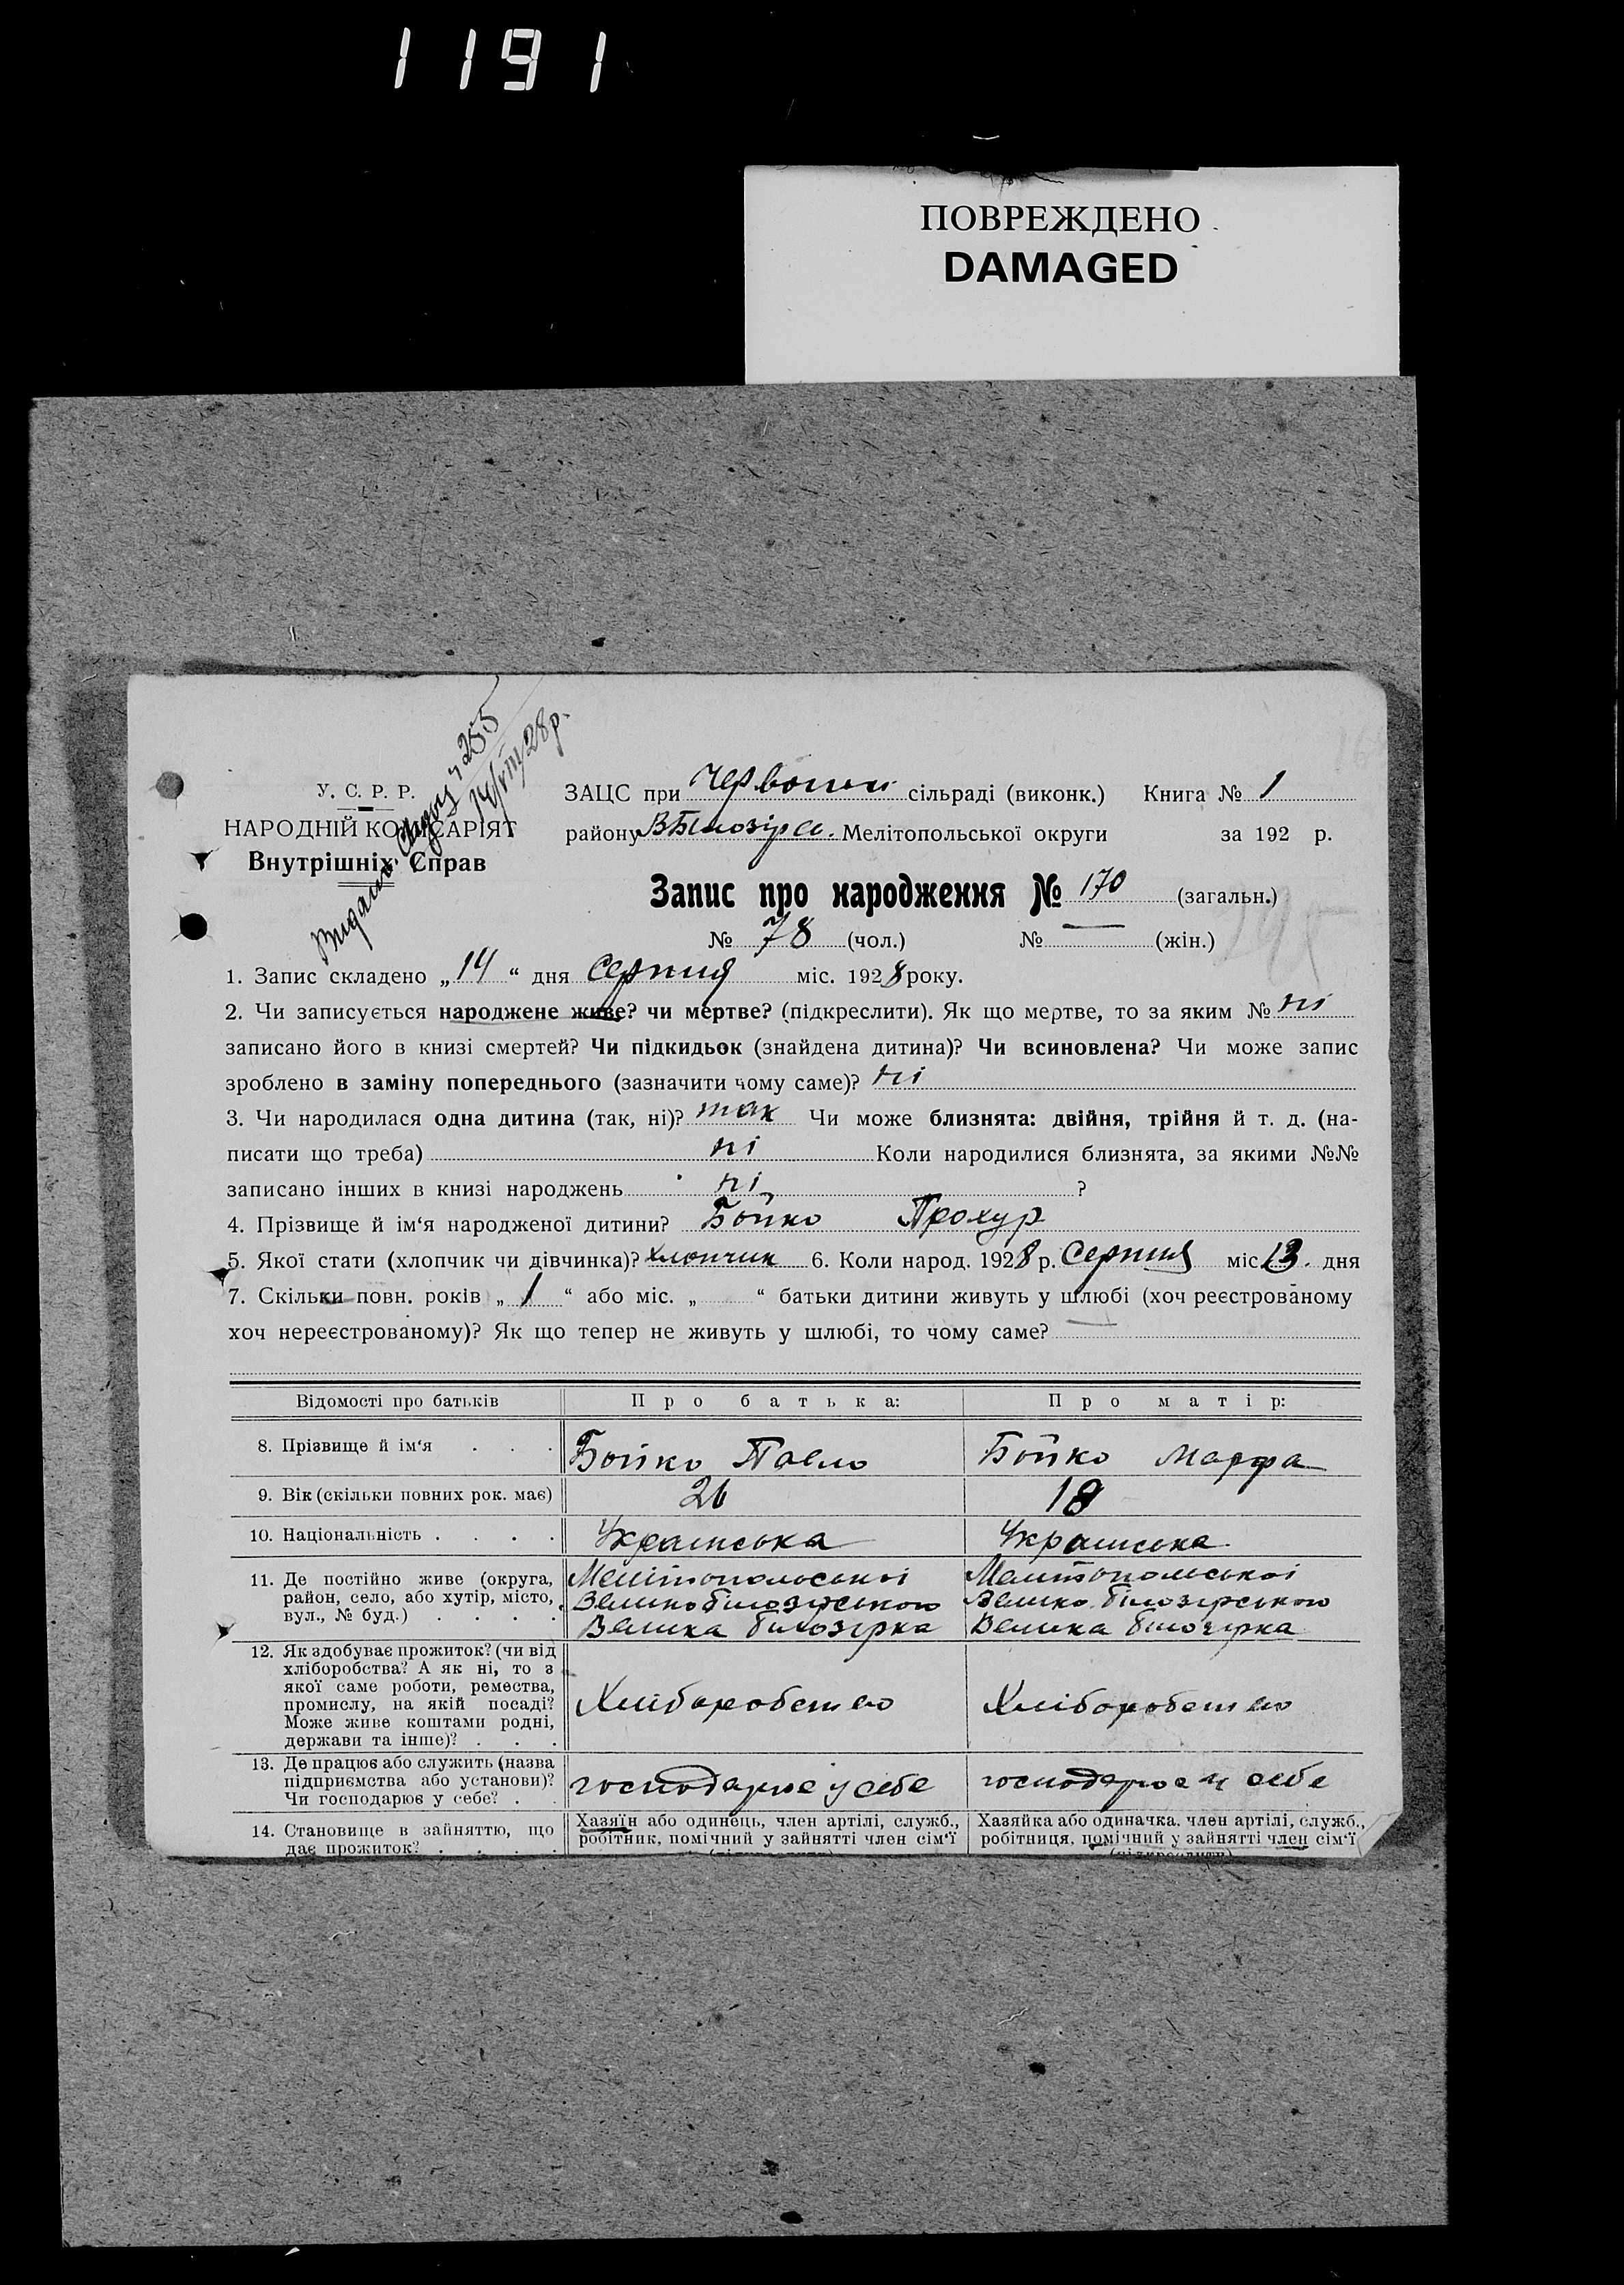 1191
ПОВРЕЖДЕНО
DAMAGED
Видано 255
14/VIII 28 р.
У. С. Р. Р.
НАРОДНІЙ КОМІСАРІЯТ
Внутрішніх Справ
ЗАЦС при Червоній сільраді (виконк.) Книга № 1
району ВБілозірс. Мелітопольської округи за 192 р.
Запис про народження № 170 (загальн.)
№ 78 (чол.) № — (жін.)
1. Запис складено „14“ дня Серпня міс. 1928 року.
2. Чи записується народжене живе? чи мертве? (підкреслити). Як що мертве, то за яким № ні
записано його в книзі смертей? Чи підкидьок (знайдена дитина)? Чи всиновлена? Чи може запис
зроблено в заміну попереднього (зазначити чому саме)? ні
3. Чи народилася одна дитина (так, ні)? так Чи може близнята: двійня, трійня й т. д. (на-
писати що треба) ні Коли народилися близнята, за якими №№
записано інших в книзі народжень ні ?
4. Прізвище й ім‘я народженої дитини? Бойко Прохур
5. Якої стати (хлопчик чи дівчинка)? хлопчик 6. Коли народ. 1928 р. Серпня міс. 13. дня
7. Скільки повн. років „1“ або міс. „ “ батьки дитини живуть у шлюбі (хоч реєстрованому
хоч нереєстрованому)? Як що тепер не живуть у шлюбі, то чому саме? —
Відомості про батьків Про батька: Про матір:
8. Прізвище й ім‘я . . . Бойко Павло Бойко Марфа
9. Вік (скільки повних рок. має) 26 18
10. Національність . . . . Українська Українська
11. Де постійно живе (округа, район, село, або хутір, місто, вул., № буд.) . . . .
Мелітопольської Мелітопольської
Великобілозірського Велико білозірського
Велика білозірка Велика білозірка
12. Як здобуває прожиток? (чи від
хліборобства? А як ні, то з
якої саме роботи, ремества,
промислу, на якій посаді?
Може живе коштами родні,
держави та інше)? . . .
Хліборобство Хліборобство
13. Де працює або служить (назва
підприємства або установи)?
Чи господарює у себе? . .
господарює у себе господарює у себе
14. Становище в зайняттю, що
дає прожиток? . . . .
Хазяїн або одинець, член артілі, служб.,
робітник, помічний у зайнятті член сім‘ї
Хазяйка або одиначка, член артілі, служб.,
робітниця, помічний у зайнятті член сім‘ї